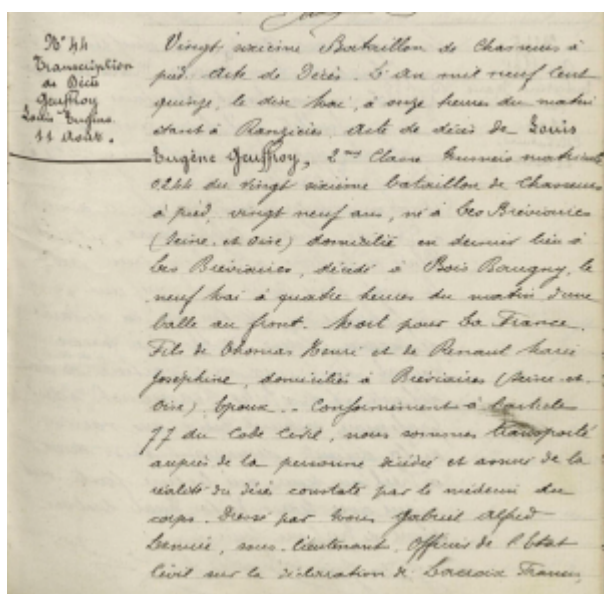 N° 44
Transcription
de Décès
Geuffroy
Louis Eugène
11 Août.
Vingt sixième Bataillon de Chasseurs à
pied. Acte de Décès. L'An mil neuf cent
quinze, le dix Mai, à onze heures du matin
étant à Acte de décès de Louis
Eugène Geuffroy, 2me Classe Numéro matricule
0244 du vingt sixième bataillon de Chasseurs
à pied, vingt neuf ans, né à Les Bréviaires
(Seine-et-Oise) domicilié en dernier lieu à
Les Bréviaires, décédé à Bois le
neuf Mai à quatre heures du matin d'une
balle au front. Mort pour La France.
Fils de Thomas Henri et de Renault Marie
Joséphine, domiciliés à Bréviaires (Seine-et-
Oise), Époux .. Conformément à l'article
77 du Code Civil, nous sommes transporté
auprès de la personne décédée et assuré de la
réalité du décès constaté par le médecin du
corps. Dressé par Nous Gabriel Alfred
sous-lieutenant, Officier de l'Etat
Civil sur la déclaration de Lacroix